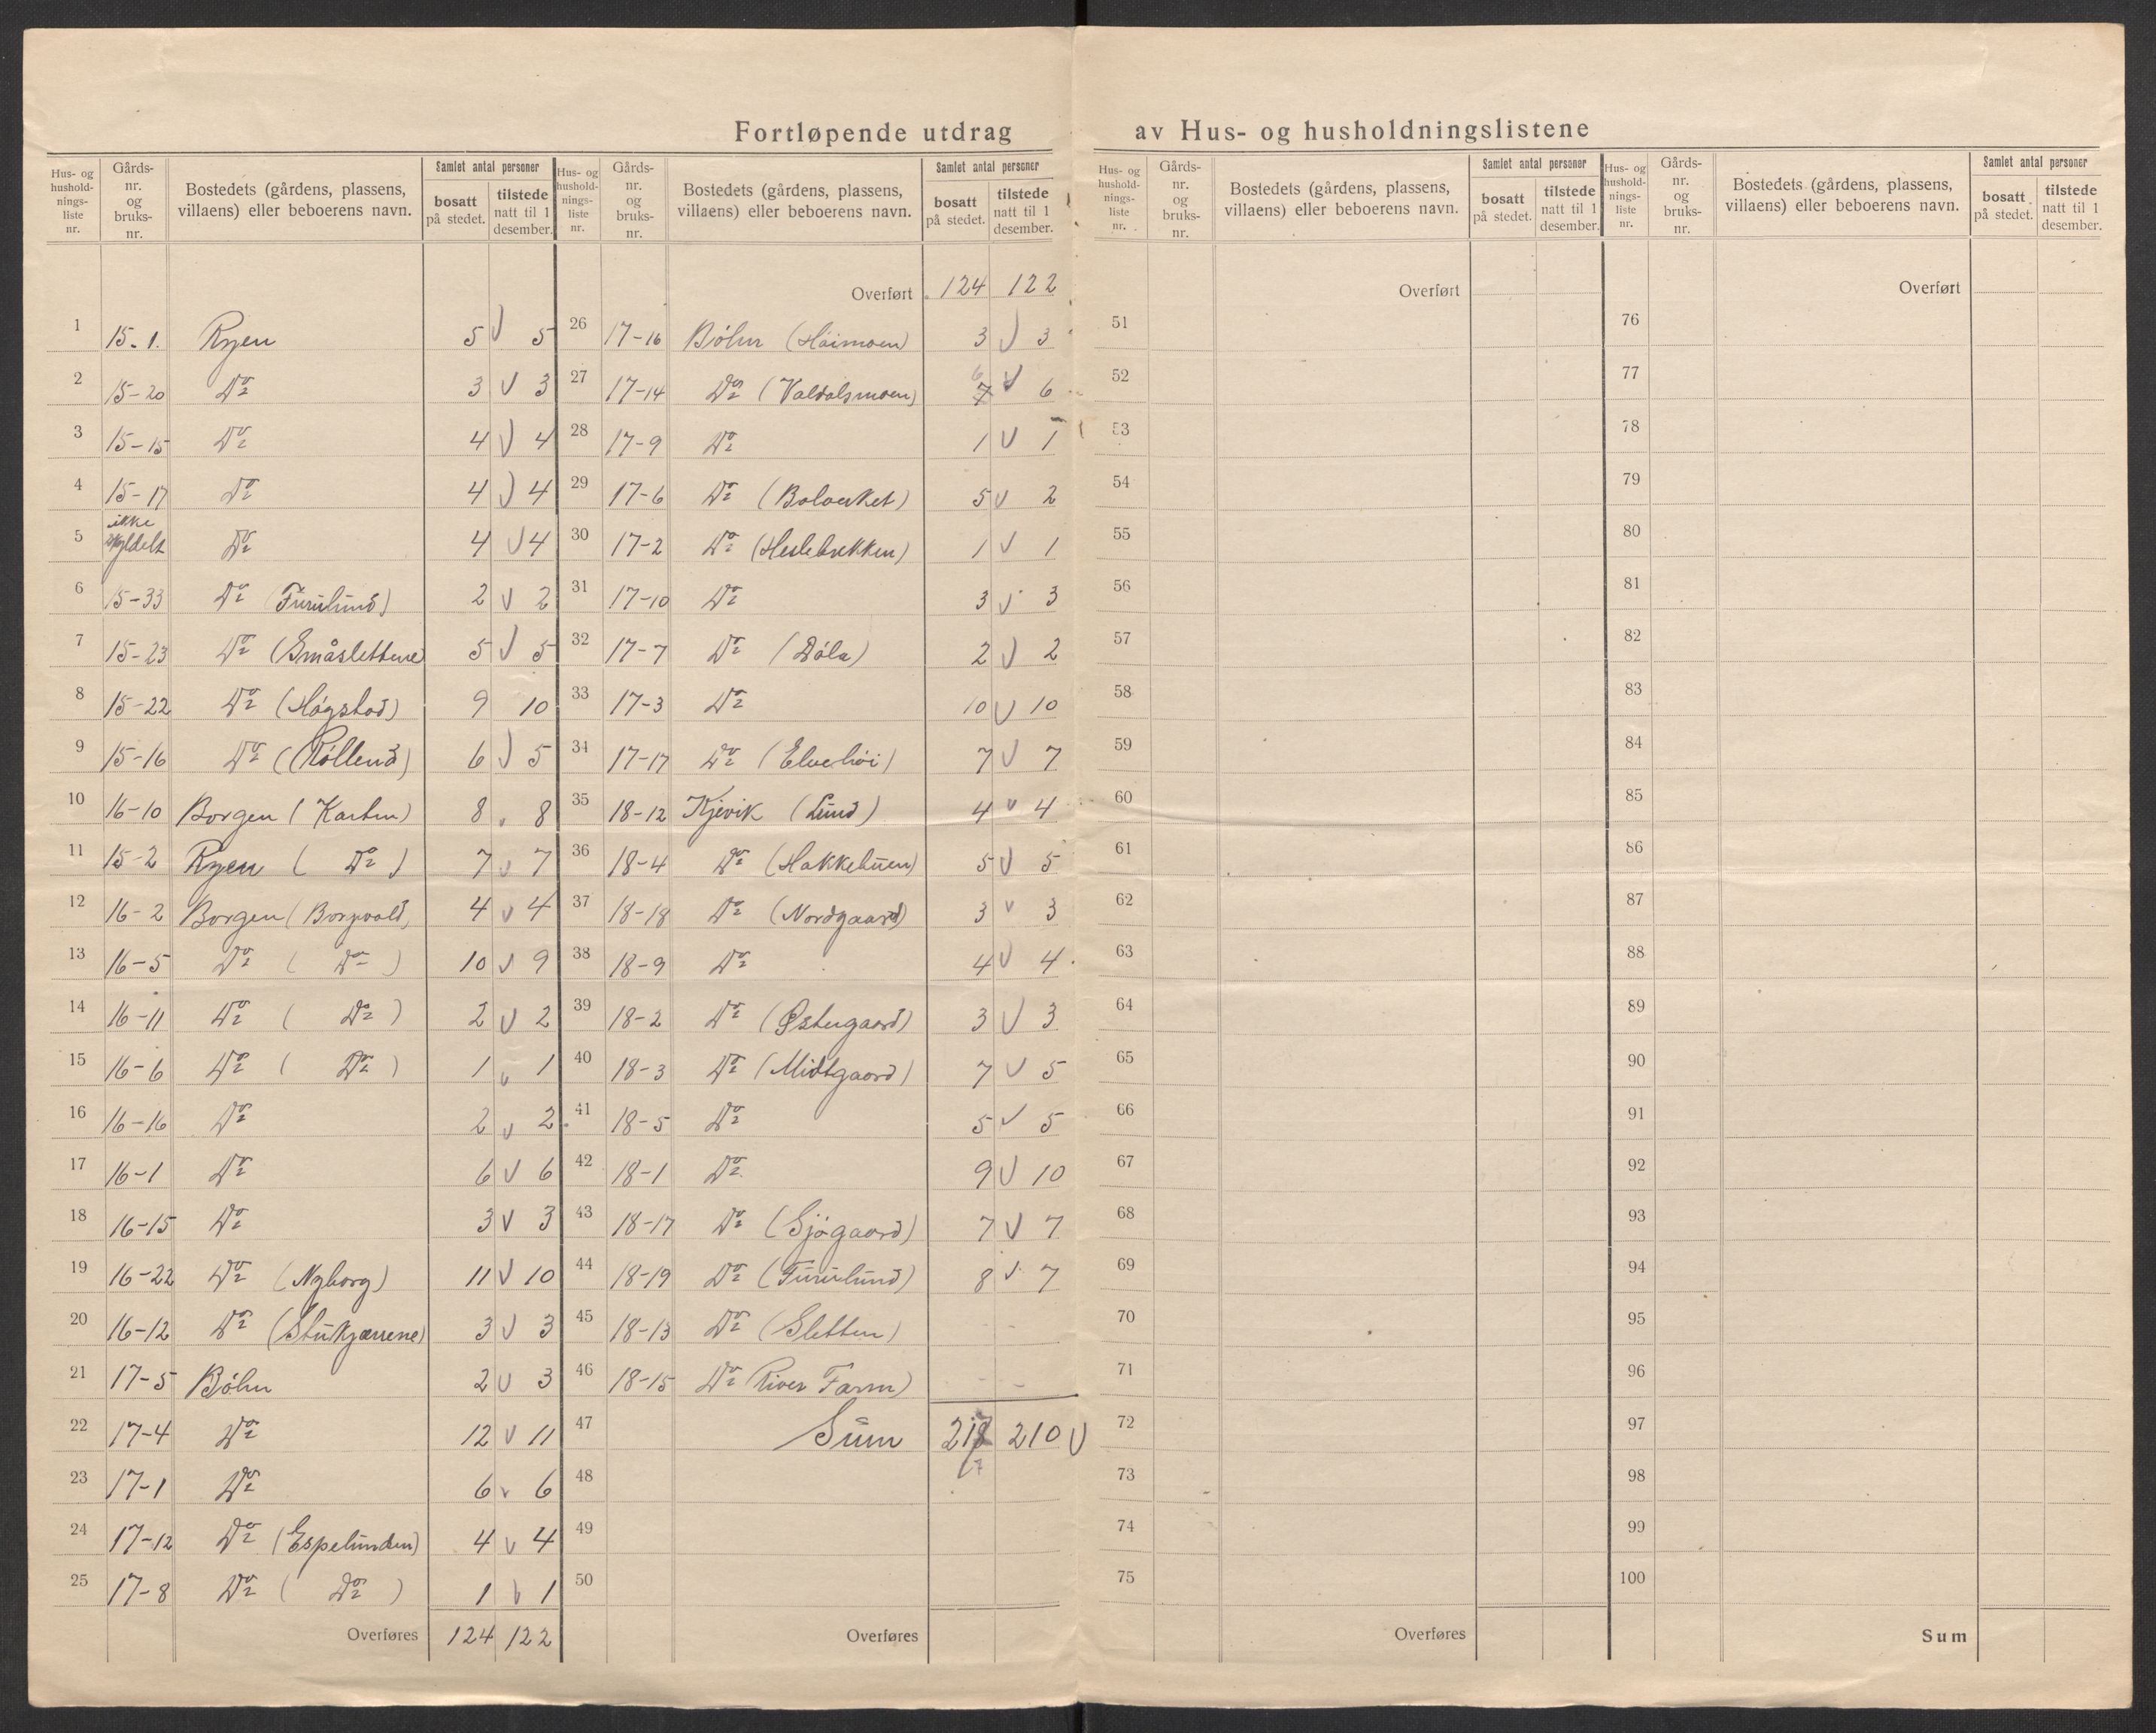 Fortløpende utdrag av Hus- og husholdningslistene
Hus- og husholdnings-liste nr. | Gårds-nr. og bruks-nr. | Bostedets (gårdens, plassens, villaens) eller beboerens navn. | Samlet antal personer bosatt på stedet. | tilstede natt til 1 desember.
1 15-1. Ryen 5 V 5
2 15-20 Do 3 V 3
3 15-15 Do 4 V 4
4 15-17 Do 4 V 4
5 ikke skyldelt Do 4 V 4
6 15-33 Do (Furulund) 2 V 2
7 15-23 Do (Småslettene) 5 V 5
8 15-22 Do (Høgstad) 9 10
9 15-16 Do (Røllend) 6 V 5
10 16-10 Borgen (Karten) 8 8
11 15-2 Ryen ( Do ) 7 v 7
12 16-2 Borgen (Borgvold) 4 v 4
13 16-5 Do ( Do ) 10 v 9
14 16-11 Do ( Do ) 2 V 2
15 16-6 Do ( Do ) 1 v 1
16 16-16 Do 2 v 2
17 16-1 Do 6 V 6
18 16-15 Do 3 V 3
19 16-22 Do (Nyborg) 11 V 10
20 16-12 Do (Stukjærrene) 3 V 3
21 17-5 Bøhn 2 V 3
22 17-4 Do 12 v 11
23 17-1 Do 6 v 6
24 17-12 Do (Espelunden) 4 v 4
25 17-8 Do ( Do ) 1 v 1
Overføres 124 122
Hus- og husholdnings-liste nr. | Gårds-nr. og bruks-nr. | Bostedets (gårdens, plassens, villaens) eller beboerens navn. | Samlet antal personer bosatt på stedet. | tilstede natt til 1 desember.
Overført 124 122
26 17-16 Bøhn (Høimoen) 3 V 3
27 17-14 Do (Valdalsmoen) 7 6 V 6
28 17-9 Do 1 V 1
29 17-6 Do (Bolverket) 5 V 2
30 17-2 Do (Heslebrekken) 1 V 1
31 17-10 Do 3 V 3
32 17-7 Do (Døla) 2 V 2
33 17-3 Do 10 V 10
34 17-17 Do (Elvehøi) 7 V 7
35 18-12 Kjevik (Lund) 4 v 4
36 18-4 Do (Hakkebuen) 5 V 5
37 18-18 Do (Nordgaard) 3 v 3
38 18-9 Do 4 V 4
39 18-2 Do (Østergaard) 3 V 3
40 18-3 Do (Midtgaard) 7 V 5
41 18-5 Do 5 V 5
42 18-1 Do 9 V 10
43 18-17 Do (Sjøgaard) 7 V 7
44 18-19 Do (Furulund) 8 V 7
45 18-13 Do (Sletten) - -
46 18-15 Do River Farm) - -
47 Sum 218 7 210 V
48
49
50
Overføres
Hus- og husholdnings-liste nr. | Gårds-nr. og bruks-nr. | Bostedets (gårdens, plassens, villaens) eller beboerens navn. | Samlet antal personer bosatt på stedet. | tilstede natt til 1 desember.
Overført
51
52
53
54
55
56
57
58
59
60
61
62
63
64
65
66
67
68
69
70
71
72
73
74
75
Overføres
Hus- og husholdnings-liste nr. | Gårds-nr. og bruks-nr. | Bostedets (gårdens, plassens, villaens) eller beboerens navn. | Samlet antal personer bosatt på stedet. | tilstede natt til 1 desember.
Overført
76
77
78
79
80
81
82
83
84
85
86
87
88
89
90
91
92
93
94
95
96
97
98
99
100
Sum